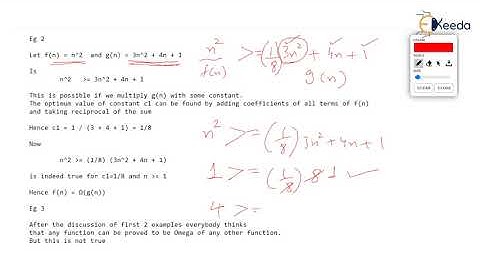 Eg 2
Let f(n) = n^2 and g(n) = 3n^2 + 4n + 1
Is
n^2 >= 3n^2 + 4n + 1
This is possible if we multiply g(n) with some constant.
The optimum value of constant c1 can be found by adding coefficients of all terms of f(n)
and taking reciprocal of the sum
Hence c1 = 1 / (3 + 4 + 1) = 1/8
Now
n^2 >= (1/8) (3n^2 + 4n + 1)
is indeed true for c1=1/8 and n >= 1
Hence f(n) = Ω(g(n))
Eg 3
After the discussion of first 2 examples everybody thinks
that any function can be proved to be Omega of any other function.
But this is not true
n² >= (1/8) 3n² + 4n + 1
f(n) g(n)
n² >= (1/8) 3n² + 4n + 1
1 >= (1/8) 8 1
4 >=
Keeda